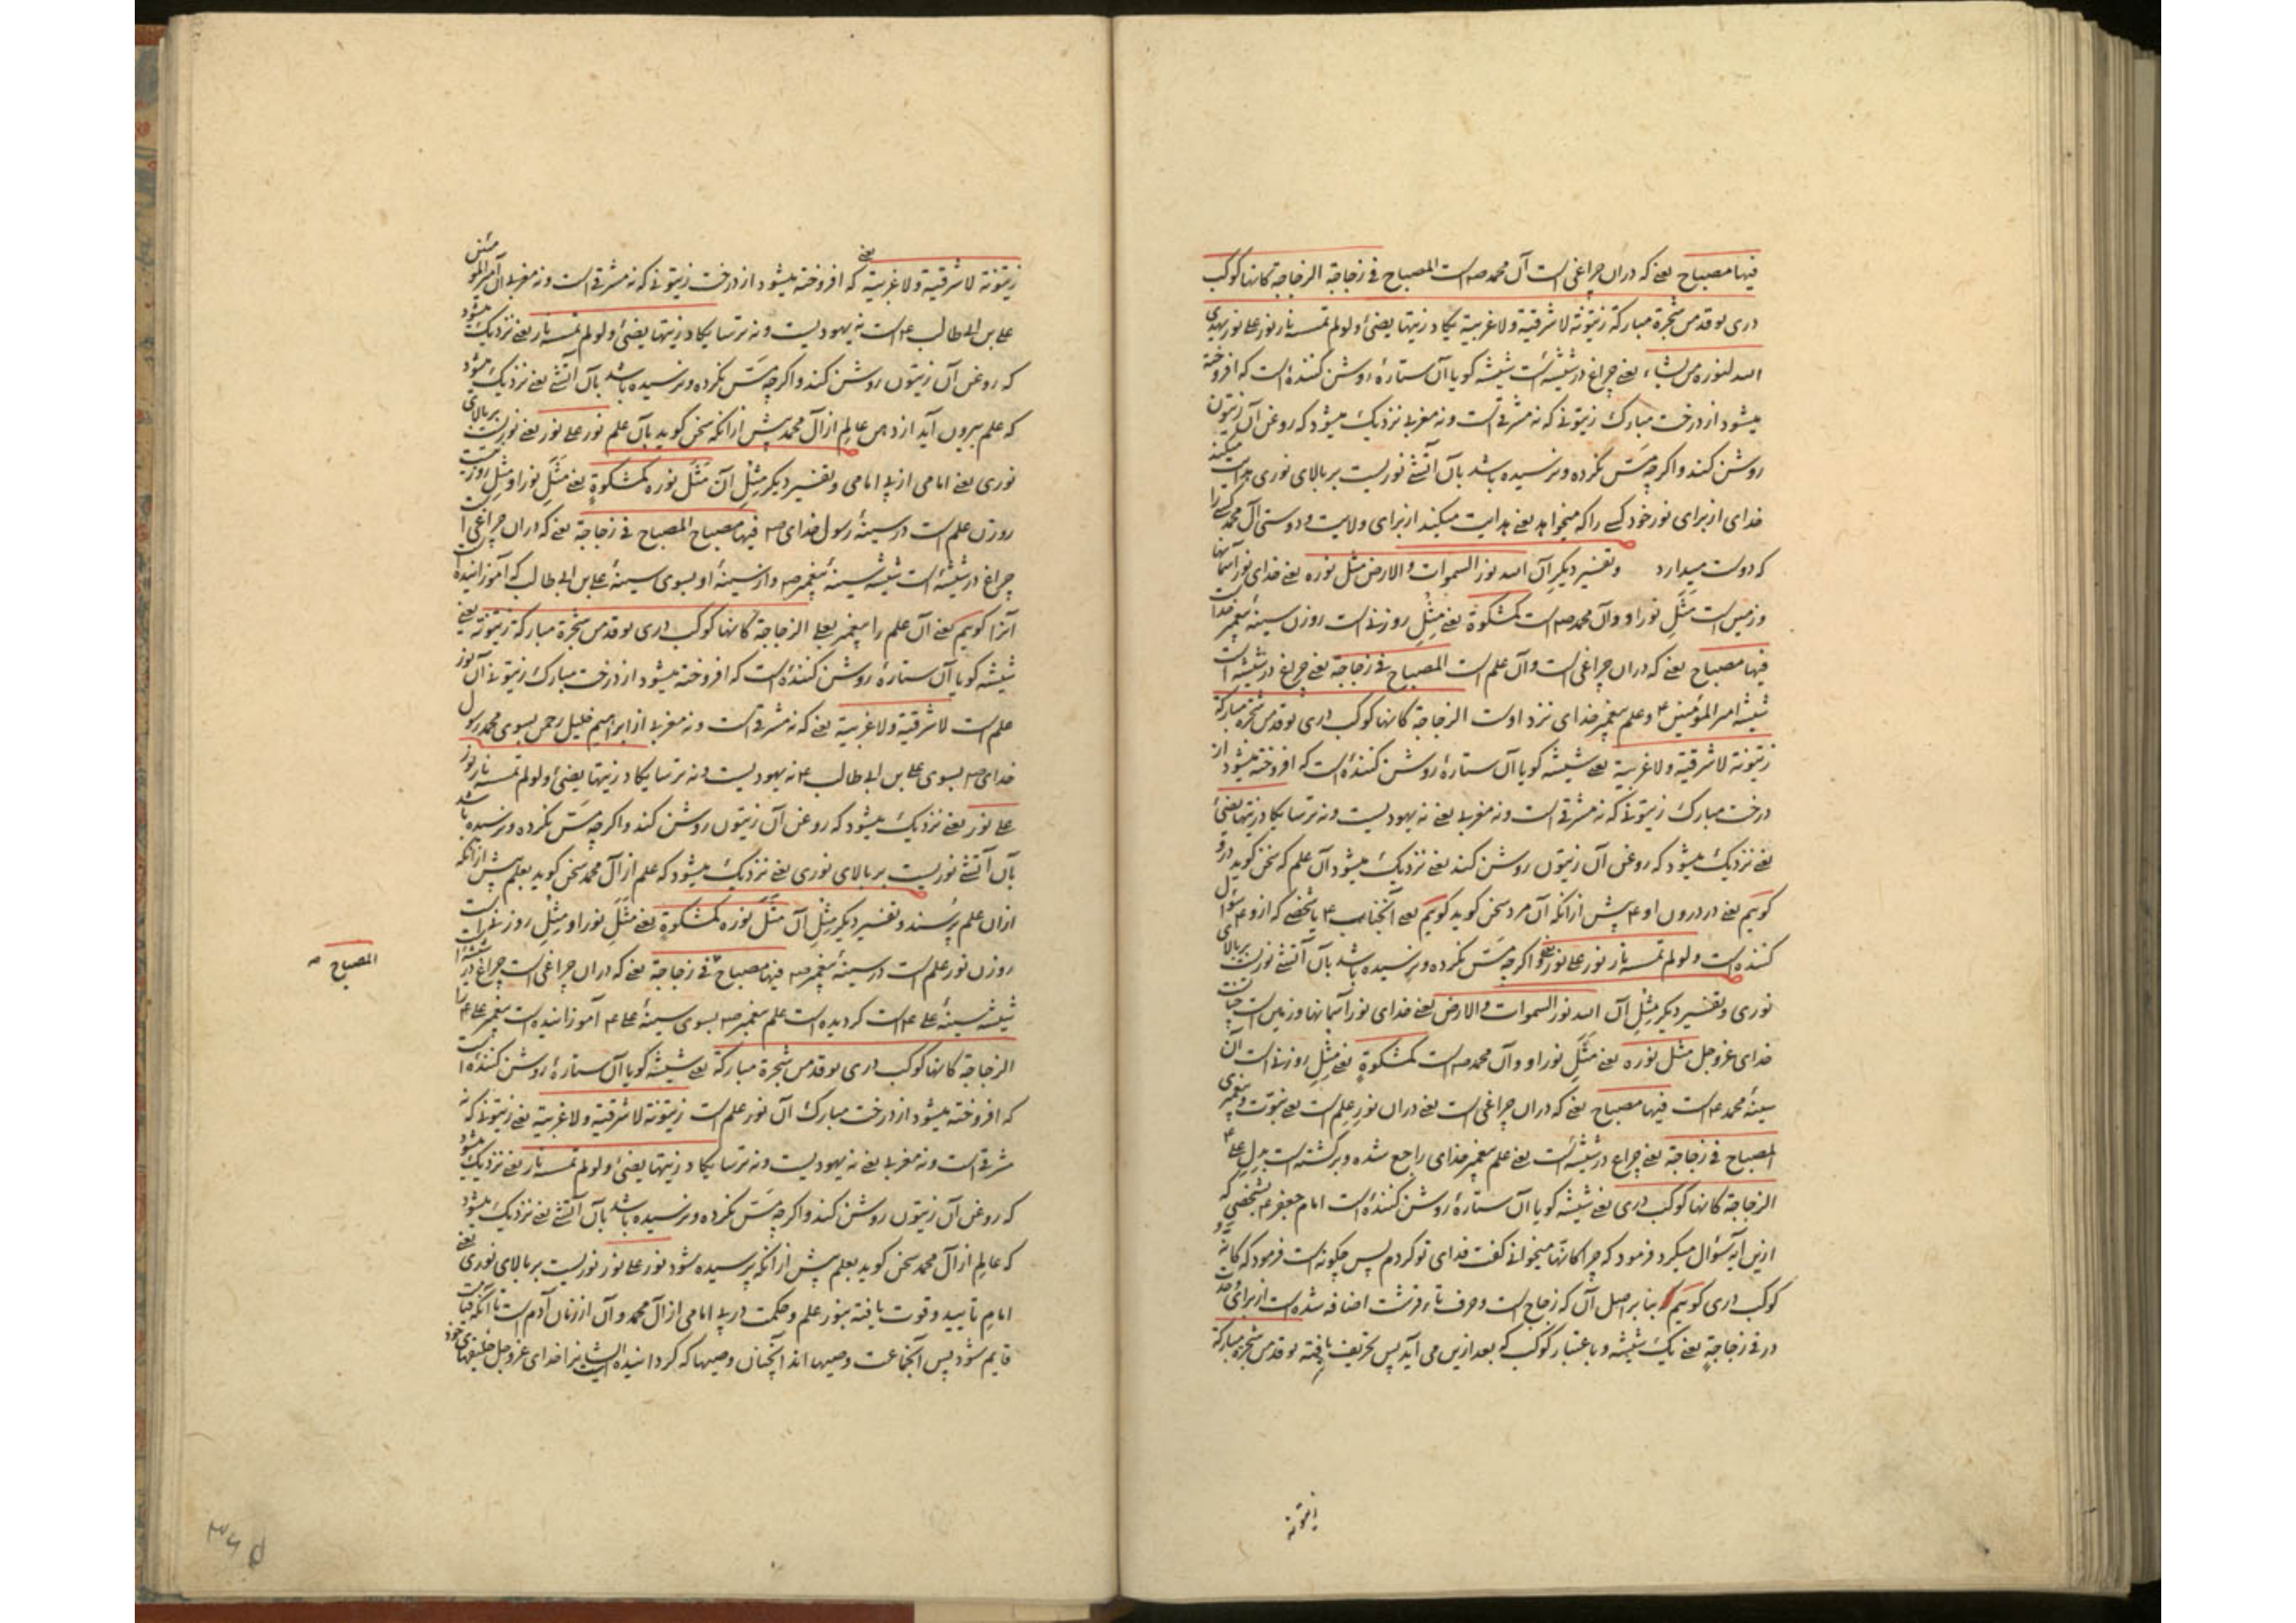 فیها مصباح یعنے که دران چراغی است آل محمد صه است المصباح فی زجاجة الزجاجة کانها کوکب
دری یوقد من شجرة مبارکة زیتونة لا شرقیة ولا غربیة یکاد زیتها یضئ ولو لم تمسه نار نور علے نور یهدی
الله لنوره من یشاء یعنے چراغ در شیشه است شیشه کویا آن ستارهٔ روشن کنندهٔ است که افروخته
میشود از درخت مبارک زیتونے که نه مشرقے است ونه مغربے نزدیک میشود که روغن آن زیتون
روشن کند واکرچه مسّ نکرده ونرسیده باشد بآن آتشے نوریست بر بالای نوری هدایت میکند
خدای از برای نور خود کسے را که میخواهد یعنے هدایت میکند از برای ولایت ودوستی آل محمد کسے را
که دوست میدارد وتفسیر دیکر آن الله نور السموات والارض مثل نوره یعنے خدای نور آسمانها
وزمین است مثل نور او وآن محمد صه است کمشکوة یعنے مثل روزنے است روزن سینهٔ پیغمبر خدا
فیها مصباح یعنے که دران چراغی است وآن علم است المصباح فی زجاجة یعنے چراغ در شیشه است
شیشه امیر المؤمنین ع وعلم پیغمبر خدای نزد اوست الزجاجة کانها کوکب دری یوقد من شجرة مبارکة
زیتونة لا شرقیة ولا غربیة یعنے شیشه کویا آن ستارهٔ روشن کنندهٔ است که افروخته میشود از
درخت مبارک زیتونے که نه مشرقے است ونه مغربے یعنے نه یهودیست ونه ترسا یکاد زیتها یضئ
یعنے نزدیک میشود که روغن آن زیتون روشن کند یعنے نزدیک میشود آن علم که سخن کوید درو
کوئیم یعنے در درون او ع پیش ازانکه آن مرد سخن کوید کوئیم یعنے آنجناب ع یا شخصے که ازو ع سؤال
کننده است ولو لم تمسه نار نور علے نور یعنے واکرچه مسّ نکرده ونرسیده باشد بآن آتشے نوریست بر بالای
نوری وتفسیر دیکر مثل آن الله نور السموات والارض یعنے خدای نور آسمانها وزمین است
خدای عزوجل مثل نوره یعنے مثل نور او وآن محمد صه است کمشکوة یعنے مثل روزنے است آن
سینهٔ محمد ع است فیها مصباح یعنے که دران چراغی است یعنے دران نور علم است یعنے نبوّت وپیغمبری
المصباح فی زجاجة یعنے چراغ در شیشه است یعنے علم پیغمبر خدای راجع شده وبرکشته است بدل علے ع
الزجاجة کانها کوکب دری یعنے شیشه کویا آن ستارهٔ روشن کنندهٔ است امام جعفر ع بشخصی که
ازین آیه سؤال میکرد فرمود که چرا کانّها میخوانے کفت فدای تو کردم پس چکونه است فرمود که کانّه
کوکب دری کوئیم بنا بر اصل آن که زجاج است وحرف تا در قرشت اضافه شده است از برای وحدت
در فی زجاجة یعنے یک شیشه وباعتبار کوکب که بعد ازین می آید پس تحریف یافته یوقد من شجرة مبارکة
زیتونة
زیتونة لا شرقیة ولا غربیة یعنے که افروخته میشود از درخت زیتونے که نه مشرقے است ونه مغربے آن امیر المؤمنین
علے بن ابی طالب ع است نه یهودیست ونه ترسا یکاد زیتها یضئ ولو لم تمسه نار یعنے نزدیک میشود
که روغن آن زیتون روشن کند واکرچه مسّ نکرده ونرسیده باشد بآن آتشے یعنے نزدیک میشود
که علم بیرون آید از دهن عالم از آل محمد پیش ازانکه سخن کوید بآن علم نور علے نور یعنے نوریست بر بالای
نوری یعنے امامی از پے امامی وتفسیر دیکر مثل آن مثل نوره کمشکوة یعنے مثل نور او مثل روزنیست
روزن علم است در سینهٔ رسول خدای صه فیها مصباح المصباح فی زجاجة یعنے که دران چراغی است
چراغ در شیشهٔ است شیشه سینهٔ پیغمبر صه واز سینهٔ او بسوی سینهٔ علے بن ابی طالب که آموزانیده است
آنرا کوئیم یعنے آن علم را پیغمبر بعلے الزجاجة کانها کوکب دری یوقد من شجرة مبارکة زیتونة یعنے
شیشه کویا آن ستارهٔ روشن کنندهٔ است که افروخته میشود از درخت مبارک زیتونے آن نور
علم است لا شرقیة ولا غربیة یعنے که نه مشرقے است ونه مغربے از ابراهیم خلیل رحمن بسوی محمد رسول
خدای صه بسوی علے بن ابی طالب ع نه یهودیست ونه ترسا یکاد زیتها یضئ ولو لم تمسه نار نور
علے نور یعنے نزدیک میشود که روغن آن زیتون روشن کند واکرچه مسّ نکرده ونرسیده باشد
بآن آتشے نوریست بر بالای نوری یعنے نزدیک میشود که علم از آل محمد سخن کوید بعلم پیش ازانکه
ازان علم پرسند وتفسیر دیکر مثل آن مثل نوره کمشکوة یعنے مثل نور او مثل روزنے است
روزن نور علم است در سینهٔ پیغمبر صه فیها مصباح فی زجاجة یعنے که دران چراغی است چراغ در شیشه است
المصباح صه
شیشه سینهٔ علے ع است کردیده است علم پیغمبر صه بسوی سینهٔ علے ع آموزانیده است پیغمبر علے ع را
الزجاجة کانها کوکب دری یوقد من شجرة مبارکة یعنے شیشه کویا آن ستارهٔ روشن کنندهٔ است
که افروخته میشود از درخت مبارک آن نور علم است زیتونة لا شرقیة ولا غربیة یعنے زیتونے که نه
مشرقے است ونه مغربے یعنے نه یهودیست ونه ترسا یکاد زیتها یضئ ولو لم تمسه نار یعنے نزدیک میشود
که روغن آن زیتون روشن کند واکرچه مسّ نکرده ونرسیده باشد بآن آتشے یعنے نزدیک میشود
که عالم از آل محمد سخن کوید بعلم پیش ازانکه پرسیده شود نور علے نور نوریست بر بالای نوری یعنے
امام تایید وقوت یافته بنور علم وحکمت در پے امامی از آل محمد وآن از زمان آدم است تا آنکه قیامت
قایم شود پس آنجماعت وصیها اند آنچنان وصیها که کردانیده ایشانرا خدای عزوجل خلیفهای خود